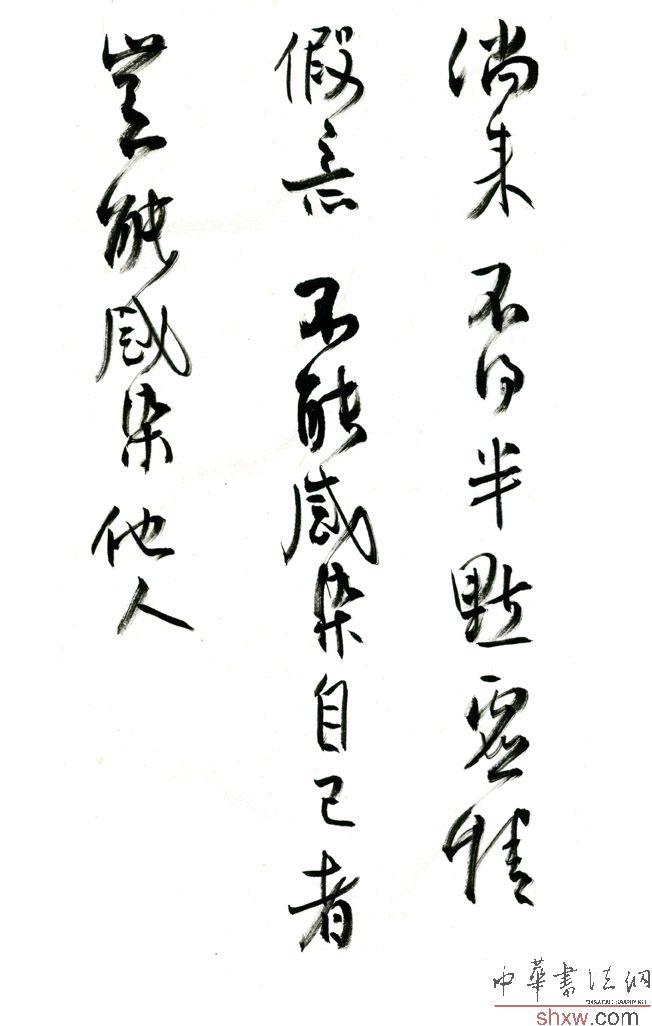 倘来 不得半點虛情
假意 不能感染自己者
豈能感染他人
中華書法網
shxw.com